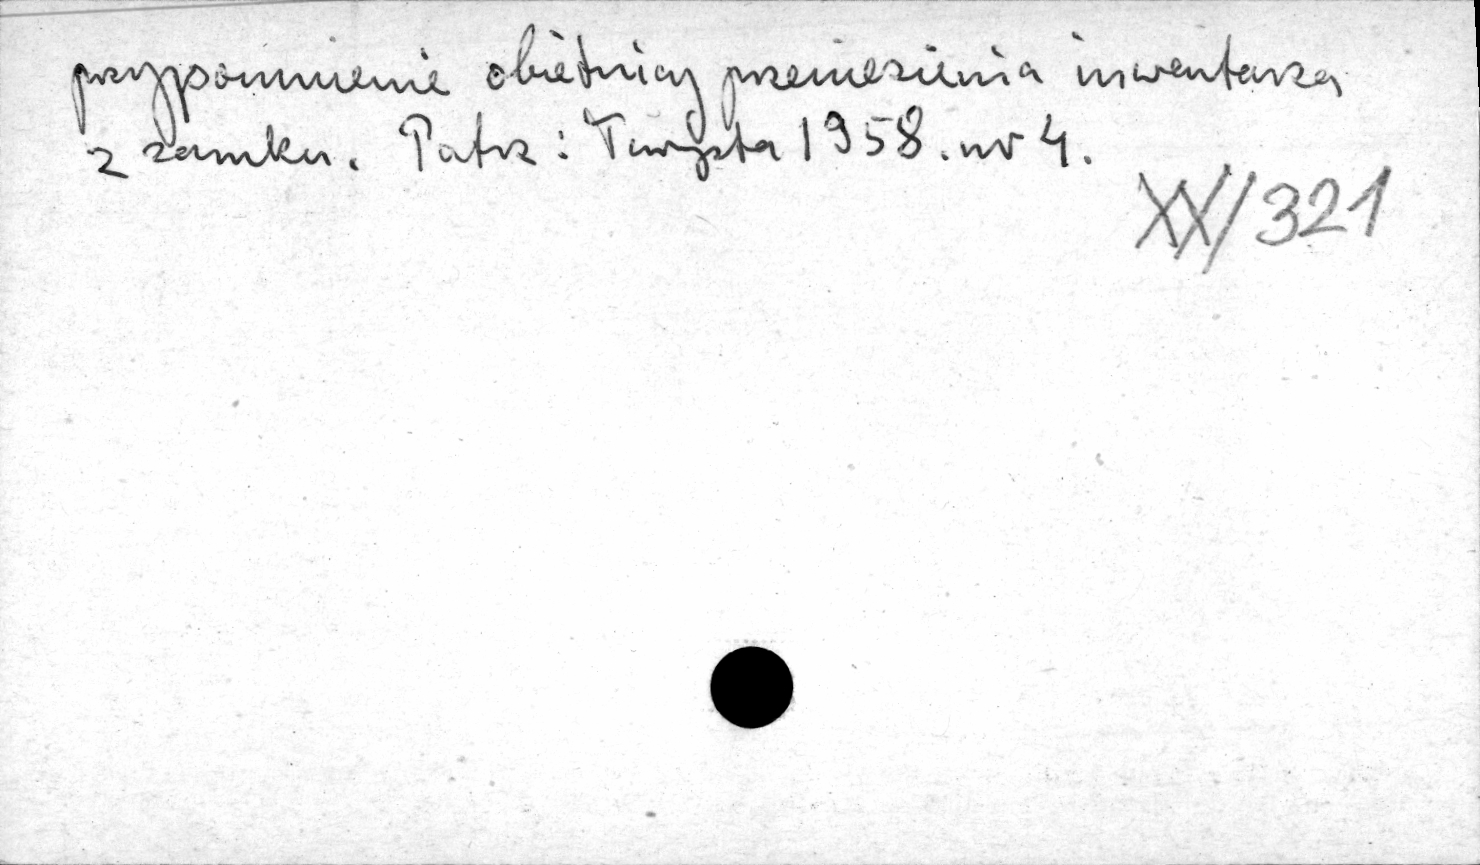 przypomnienie obietnicy przeniesienia inwentarza
z zamku. Patrz: Turysta 1958. nr 4.
XX/321